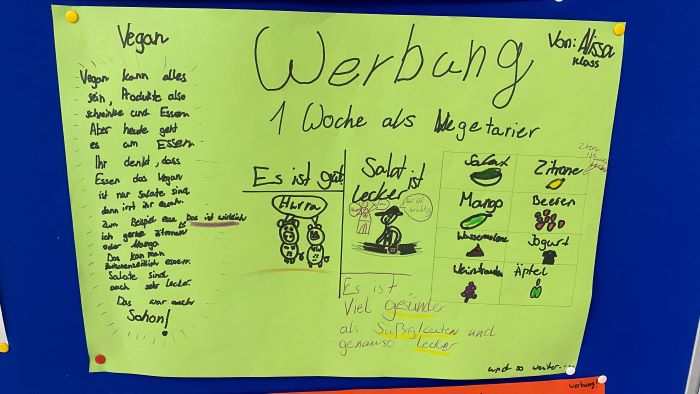 Vegan
Vegan kann alles
sein, Produkte also
schminke und Essen
Aber heute geht
es am Essen
Ihr denkt, dass
Essen das Vegan
ist nur Salate sind,
dann irrt ihr euch.
zum Beispiel esse
Das ist wirklich
ich gerne Zitronen
oder Mango
Das kann man
essen.
Salate sind
auch sehr lecker.
Das war auch
Schon!
Werbung
Von: Alissa
Klass
1 Woche als Vegetarier
Es ist gut
Hurra
Salat ist
lecker
Es ist
Viel gesünder
als Süßigkeiten und
genauso lecker
Salat
Zitrone
Mango
Beeren
Wassermelone
Jogurt
Weintrauben
Äpfel
und so weiter...
Werbung!